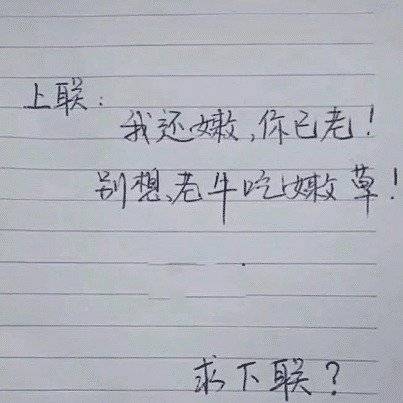 上联:
我还嫩,你已老!
别想、老牛吃嫩草!
求下联?